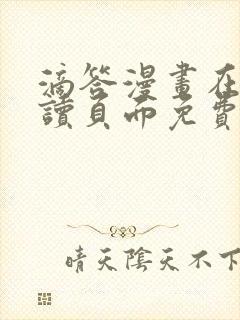 滴答漫畫在
讀頁面免費
晴天陰天不下